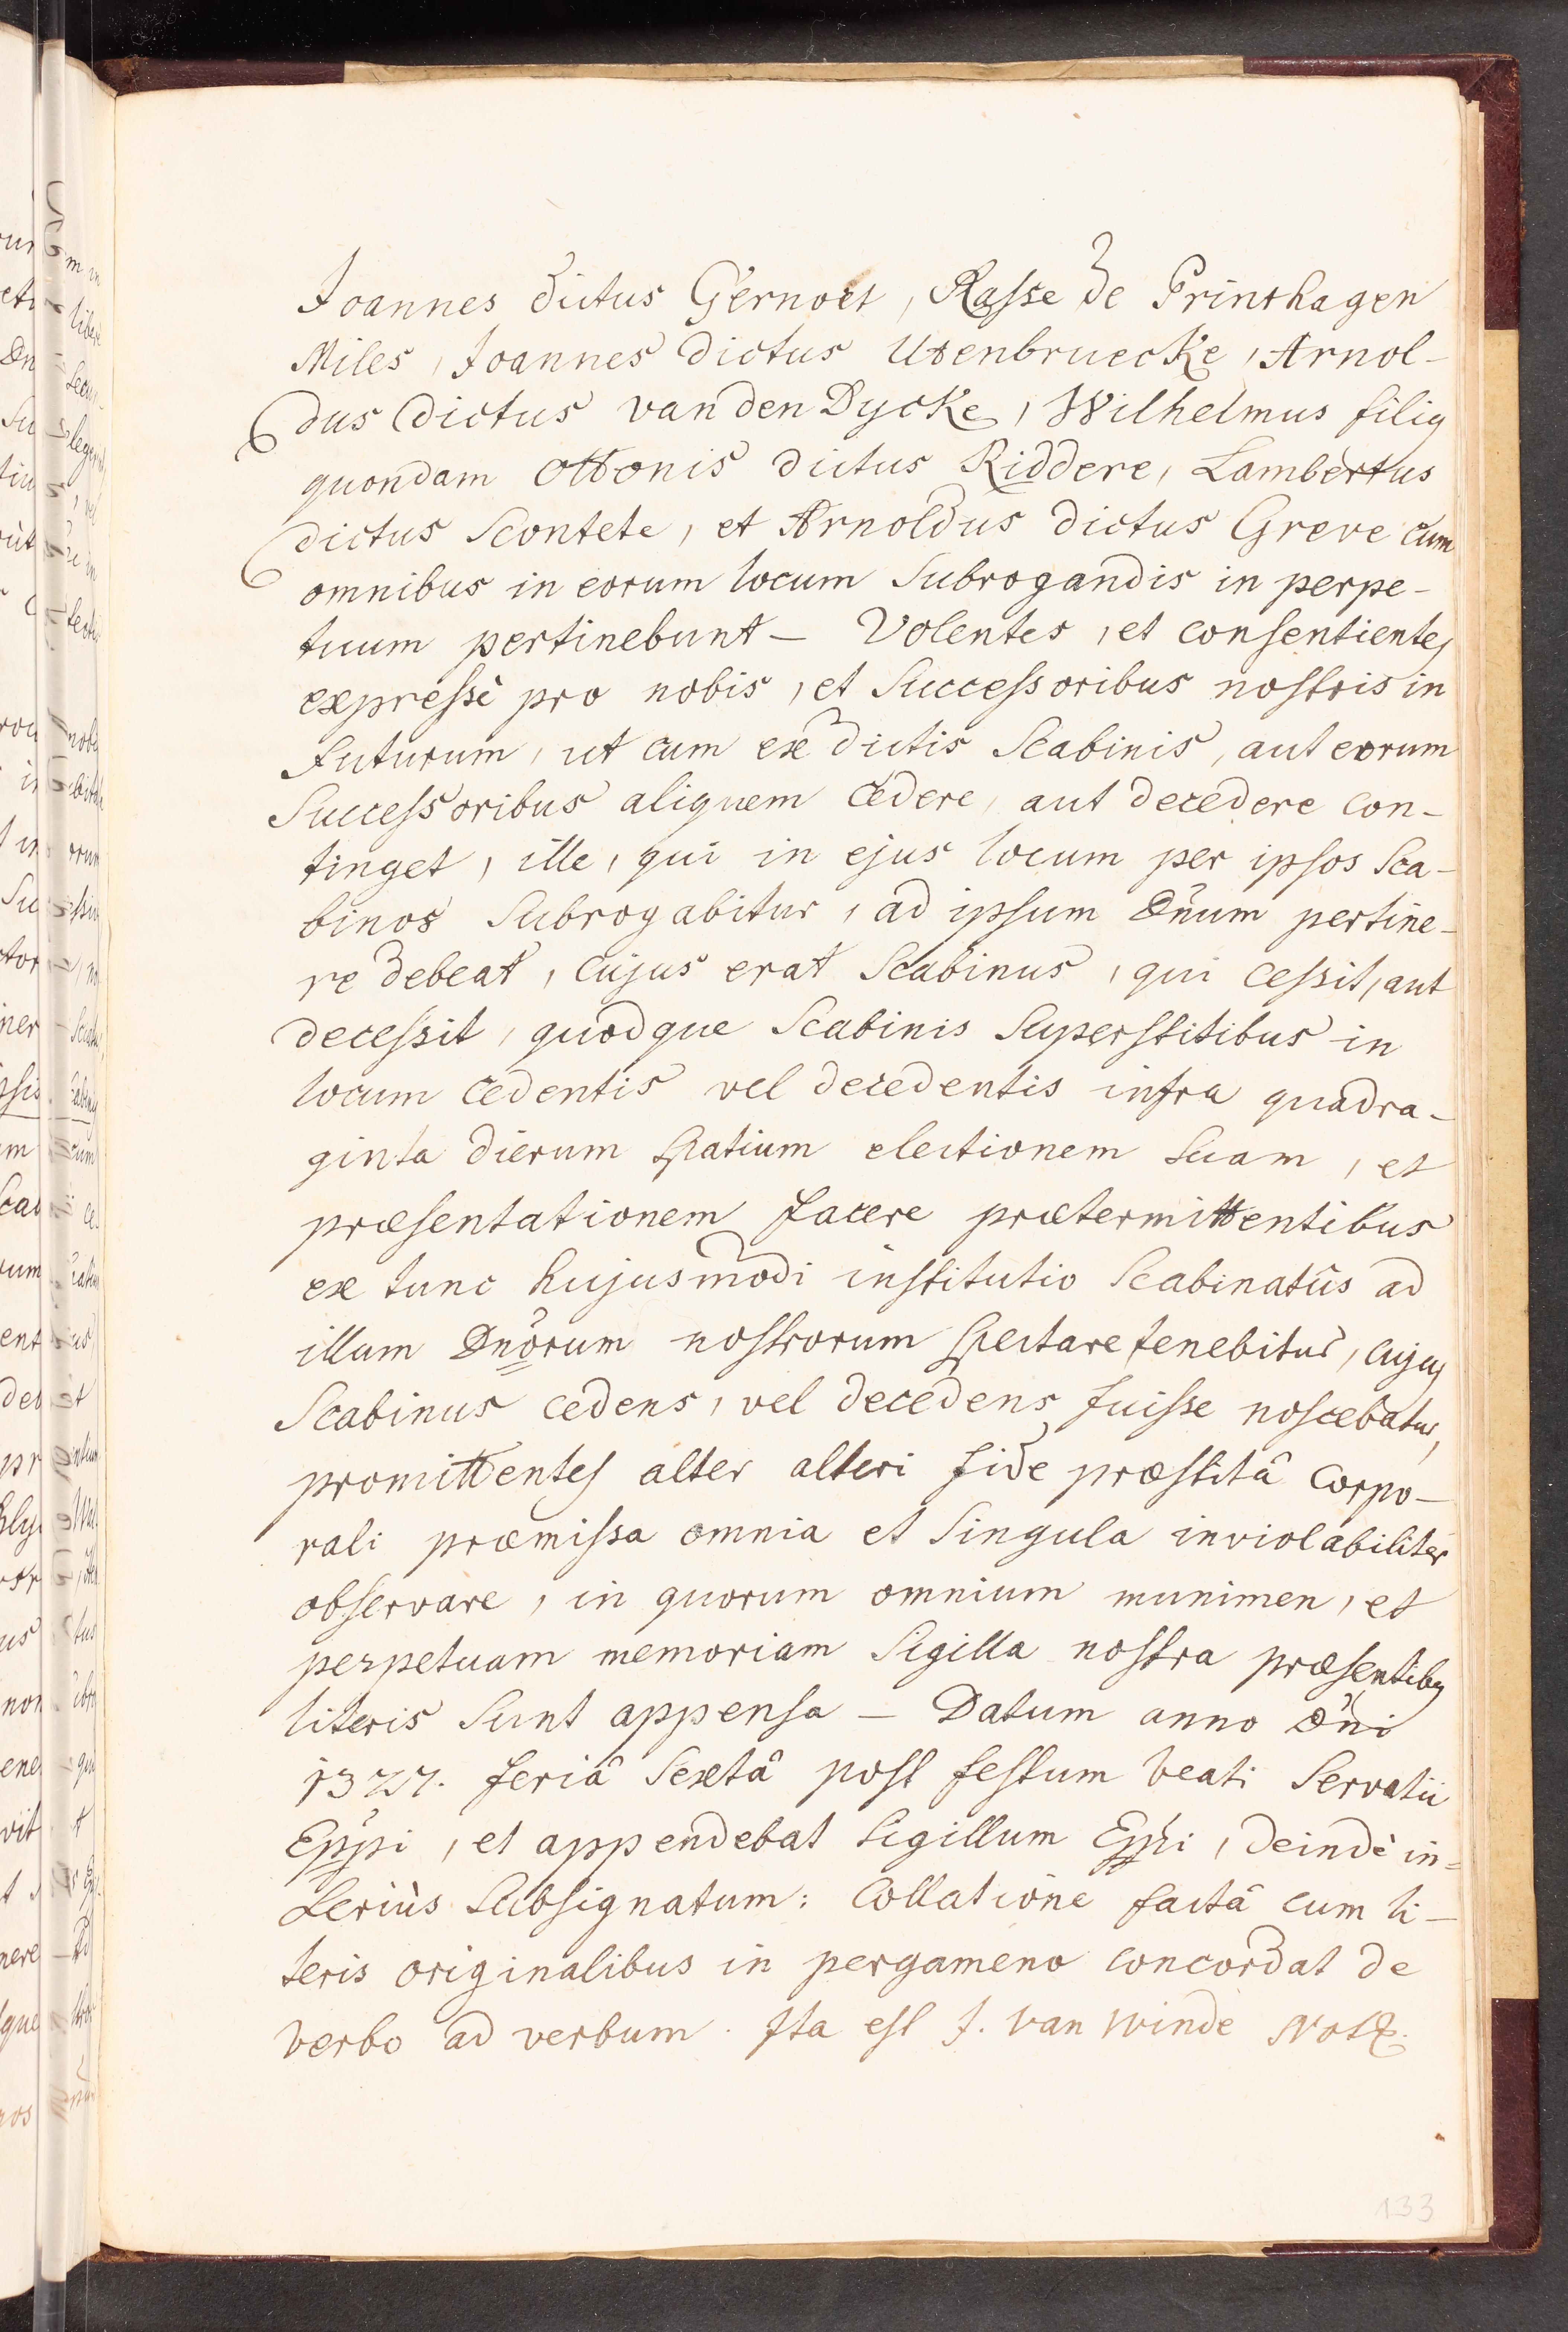 Joannes dictus Gernoet, Rasse de Printhagen
Miles, Joannes dictus Utenbruecke, Arnol-
dus dictus van den Dycke, Wilhelmus filiq
quondam Ottonis dictus Riddere, Lambertus
dictus Scontete, et Arnoldus dictus Greve cum
omnibus in eorum locum subrogandis in perpe-
tuum pertinebunt – Volentes, et consentientes
expressè pro nobis, et Successoribus nostris in
futurum, ut cum ex dictis Scabinis, aut eorum
Successoribus aliquem cedere, aut decedere con-
tinget, ille, qui in ejus locum per ipsos Sca-
binos subrogabitur, ad ipsum Dnum pertine-
re debeat, cujus erat Scabinus, qui cessit, aut
decessit, quodque Scabinis superstitibus in
locum cedentis vel decedentis infra quadra-
ginta dierum spatium electionem suam, et
præsentationem facere prætermittentibus
ex tunc hujusmodi institutio Scabinatûs ad
illum Dnorum nostrorum spectare tenebitur, cujq
Scabinus cedens, vel decedens fuisse noscebatur,
promittentes alter alteri fide præstitâ corpo-
rali præmissa omnia et singula inviolabiliter
observare, in quorum omnium munimen, et
perpetuam memoriam Sigilla nostra præsentibq
literis sunt appensa – Datum anno Dni
1327. feriâ sextâ post festum beati Servatii
Eppi, et appendebat sigillum Eppi, deindè in=
feriùs subsignatum: Collatione factâ cum li-
teris originalibus in pergameno concordat de
verbo ad verbum. Ita est J. van Winde